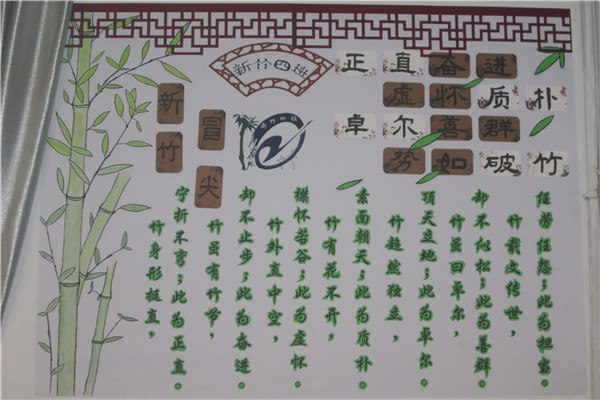 新竹四班
正直奋进
虚怀质朴
卓尔善群
势如破竹
新竹
冒尖
竹身形挺直，
宁折不弯；此为正直。
竹虽有竹节，
却不止步；此为奋进。
竹外直中空，
襟怀若谷；此为虚怀。
竹有花不开，
素面朝天；此为质朴。
竹超然独立，
顶天立地；此为卓尔。
竹虽曰卓尔，
却不似松；此为善群。
竹载文传世，
任劳任怨；此为担当。